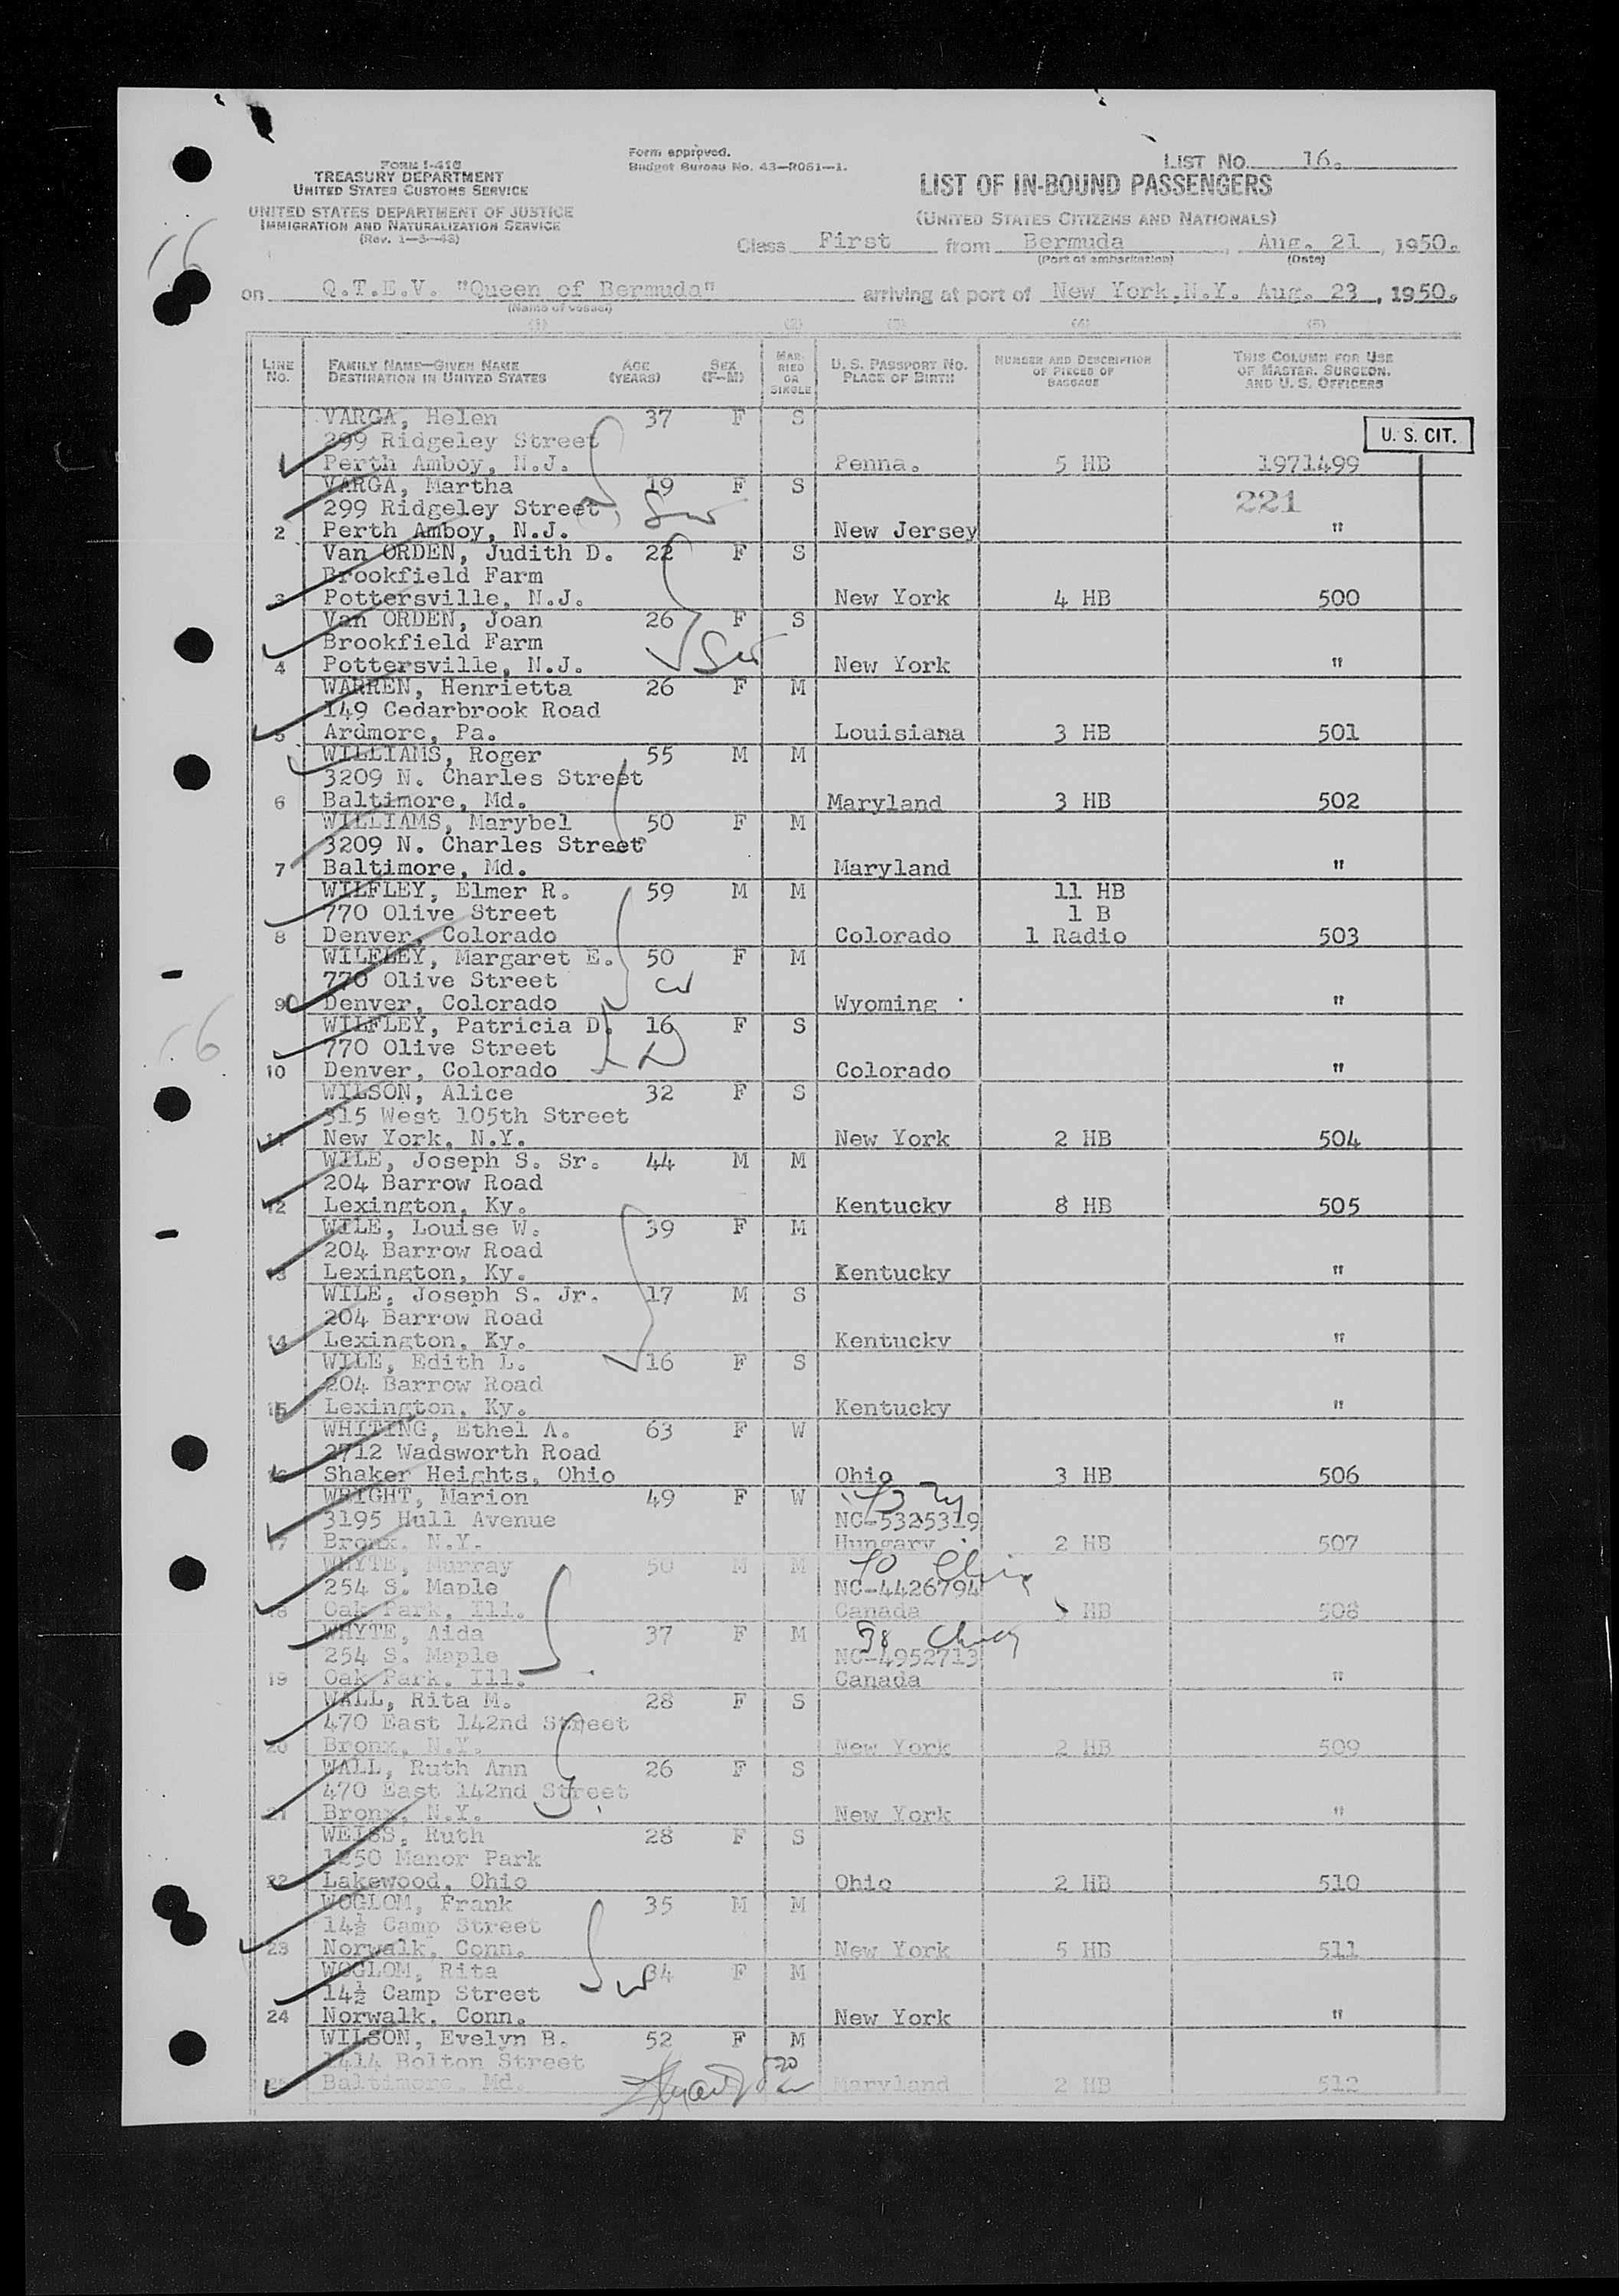 FORM I-416
TREASURY DEPARTMENT
UNITED STATES CUSTOMS SERVICE
UNITED STATES DEPARTMENT OF JUSTICE
IMMIGRATION AND NATURALIZATION SERVICE
(Rev. 1-3-48)
Form approved.
Budget Bureau No. 43-R051-1.
LIST NO. 16.
LIST OF IN-BOUND PASSENGERS
(UNITED STATES CITIZENS AND NATIONALS)
Class First from Bermuda, Aug. 21, 1950.
(Port of embarkation) (Date)
on Q.T.E.V. "Queen of Bermuda" arriving at port of New York, N.Y. Aug. 23, 1950.
(Name of vessel)
(1) (2) (3) (4) (5)
LINE NO. FAMILY NAME—GIVEN NAME DESTINATION IN UNITED STATES AGE (YEARS) SEX (F-M) MARRIED OR SINGLE U. S. PASSPORT NO. PLACE OF BIRTH NUMBER AND DESCRIPTION OF PIECES OF BAGGAGE THIS COLUMN FOR USE OF MASTER, SURGEON, AND U. S. OFFICERS
U. S. CIT.
VARGA, Helen 37 F S
299 Ridgeley Street
1 Perth Amboy, N.J. Penna. 5 HB 1971499
VARGA, Martha 19 F S
299 Ridgeley Street 221
2 Perth Amboy, N.J. New Jersey "
Van ORDEN, Judith D. 22 F S
Brookfield Farm
3 Pottersville, N.J. New York 4 HB 500
Van ORDEN, Joan 26 F S
Brookfield Farm
4 Pottersville, N.J. New York "
WARREN, Henrietta 26 F M
149 Cedarbrook Road
5 Ardmore, Pa. Louisiana 3 HB 501
WILLIAMS, Roger 55 M M
3209 N. Charles Street
6 Baltimore, Md. Maryland 3 HB 502
WILLIAMS, Marybel 50 F M
3209 N. Charles Street
7 Baltimore, Md. Maryland "
WILFLEY, Elmer R. 59 M M 11 HB
770 Olive Street 1 B
8 Denver, Colorado Colorado 1 Radio 503
WILFLEY, Margaret E. 50 F M
770 Olive Street
9 Denver, Colorado Wyoming "
WILFLEY, Patricia D. 16 F S
770 Olive Street
10 Denver, Colorado Colorado "
WILSON, Alice 32 F S
315 West 105th Street
11 New York, N.Y. New York 2 HB 504
WILE, Joseph S. Sr. 44 M M
204 Barrow Road
12 Lexington, Ky. Kentucky 8 HB 505
WILE, Louise W. 39 F M
204 Barrow Road
13 Lexington, Ky. Kentucky "
WILE, Joseph S. Jr. 17 M S
204 Barrow Road
14 Lexington, Ky. Kentucky "
WILE, Edith L. 16 F S
204 Barrow Road
15 Lexington, Ky. Kentucky "
WHITING, Ethel A. 63 F W
2712 Wadsworth Road
16 Shaker Heights, Ohio Ohio 3 HB 506
WRIGHT, Marion 49 F W
3195 Hull Avenue NC-5325319
17 Bronx, N.Y. Hungary 2 HB 507
WHITE, Murray 50 M M
254 S. Maple NC-4426794
18 Oak Park, Ill. Canada HB 508
WHYTE, Aida 37 F M
254 S. Maple NC-4952713
19 Oak Park, Ill. Canada "
WALL, Rita M. 28 F S
470 East 142nd Street
20 Bronx, N.Y. New York 2 HB 509
WALL, Ruth Ann 26 F S
470 East 142nd Street
21 Bronx, N.Y. New York "
WEISS, Ruth 28 F S
1250 Manor Park
22 Lakewood, Ohio Ohio 2 HB 510
WOGLOM, Frank 35 M M
14½ Camp Street
23 Norwalk, Conn. New York 5 HB 511
WOGLOM, Rita 34 F M
14½ Camp Street
24 Norwalk, Conn. New York "
WILSON, Evelyn B. 52 F M
1414 Bolton Street
25 Baltimore, Md. Maryland 2 HB 512